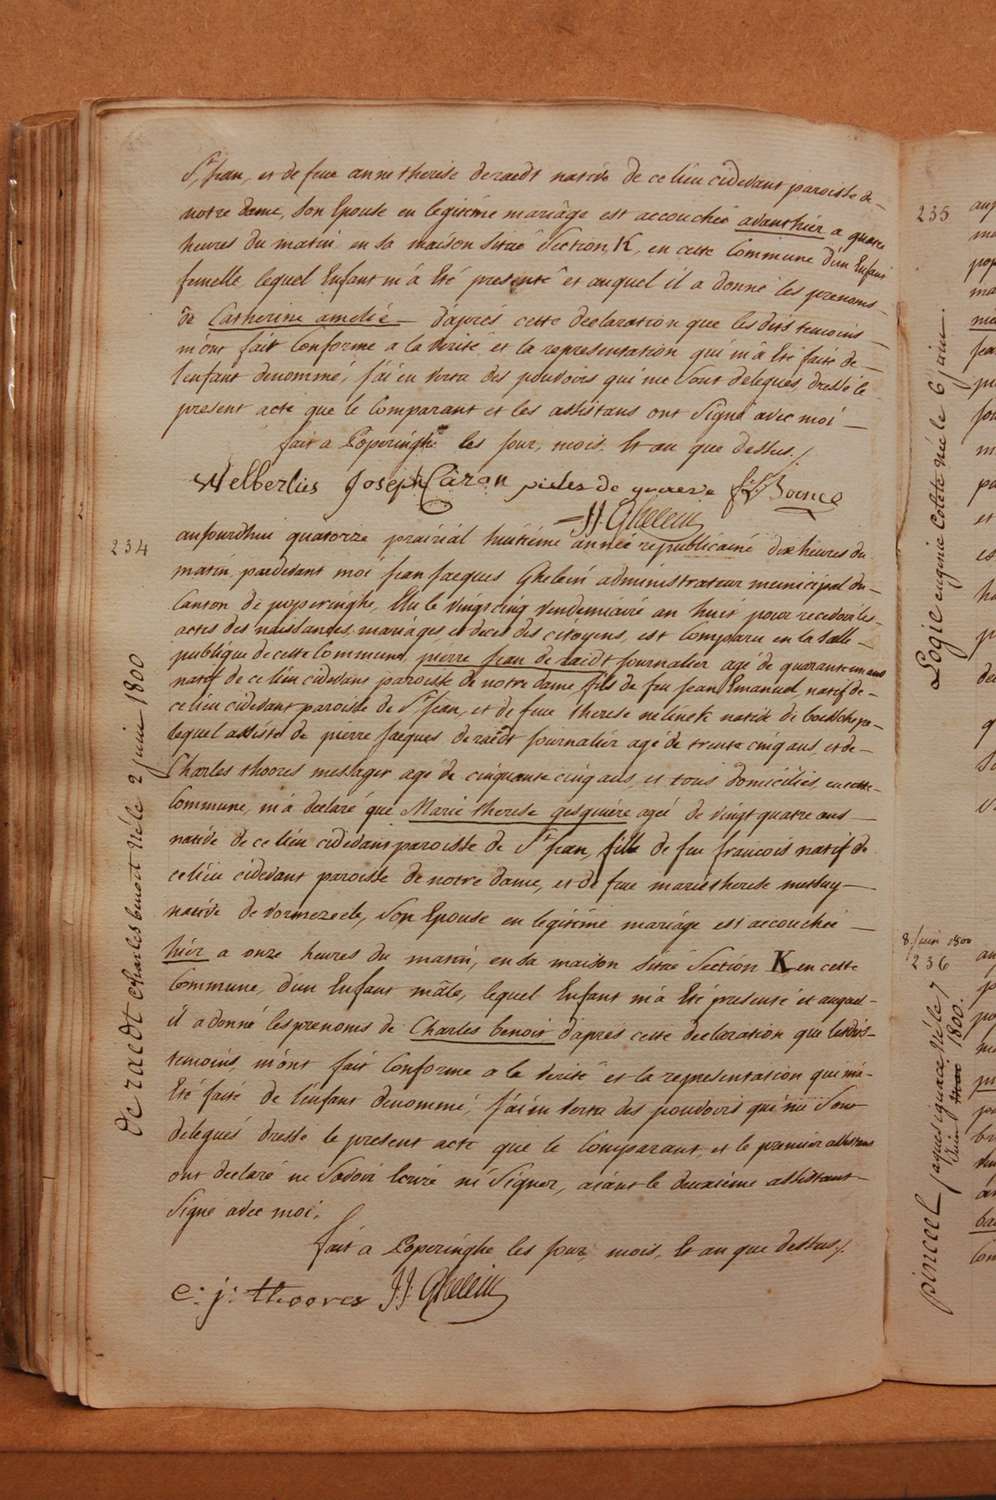 St Jean, et de feue anne therese deraedt native de ce lieu cidevant paroisse de
notre dame, son Epouse en legitime mariàge est accouchée avanthier a quatre
heures du matin en sa maison située Section K, en cette Commune d'un Enfant
femelle lequel Enfant m'a Eté presenté et auquel il a donné les prenoms
de Catherine amelie d'aprés cette declaration que les dits temoins
m'ont fait Conforme a la verité et la representation qui m'a Eté faite de
l'enfant denommé, j'ai en vertu des pouvoirs qui me sont delegués dressé le
present acte que le Comparant et les assistans ont Signé avec moi
fait a Poperinghe les jour, mois Et an que dessus./
Welberlies Joseph Caron pieter de graeve
J.J. Ghelein
234
aujourdhui quatorze prairiàl huitième année republicaine dix heures du
matin, pardevant moi jean jacques Ghelein administrateur municipal du
Canton de poperinghe, Elu le vingt cinq vendemiaire an huit pour recevoir les
actes des naissances, mariàges et deces des citoyens, est Comparu en la Salle
publique de cette Commune, pierre jean de raedt journalier agé de quarante un ans
natif de ce lieu cidevant paroisse de notre dame, fils de feu jean Emanuel natif de
ce lieu cidevant paroisse de St jean, et de feue therese nelinck native de boeschepe
lequel assisté de pierre jacques de raedt journalier agé de trente cinq ans et de
Charles thoores messager agé de cinquante cinq ans, et tous domiciliés, en cette
Commune, m'a declaré que Marie therese gesquiere ageé de vingt quatre ans
native de ce lieu cidevant paroisse de St jean, fille de feu francois natif de
ce lieu cidevant paroisse de notre dame, et de feue marie therese
native de vormezeele, son Epouse en legitime mariàge est accouchée
hièr a onze heures du matin, en sa maison située Section K en cette
Commune, d'un Enfant mâle, lequel Enfant m'a Eté presenté et auquel
il a donné les prenoms de Charles benoit d'aprés cette declaration que lesdits
temoins, m'ont fait Conforme a la verité et la representation qui m'a
Eté faite de l'enfant denommé, j'ai en vertu des pouvoirs qui me sont
delegués dressé le present acte que le Comparant, et le premier assistant
ont declaré ne savoir lecrire ni signer, aiant le deuxième assistant
signé avec moi,
fait a Poperinghe les jour, mois, Et an que dessus./
C: j: thoores J.J. Ghelein
de raedt charles benoit né le 2 juin 1800
235
Logie eugenie Colete née le 6 juin.
8/juin 1800
236
pinceel jaques ignace né le 7
juin 1800.